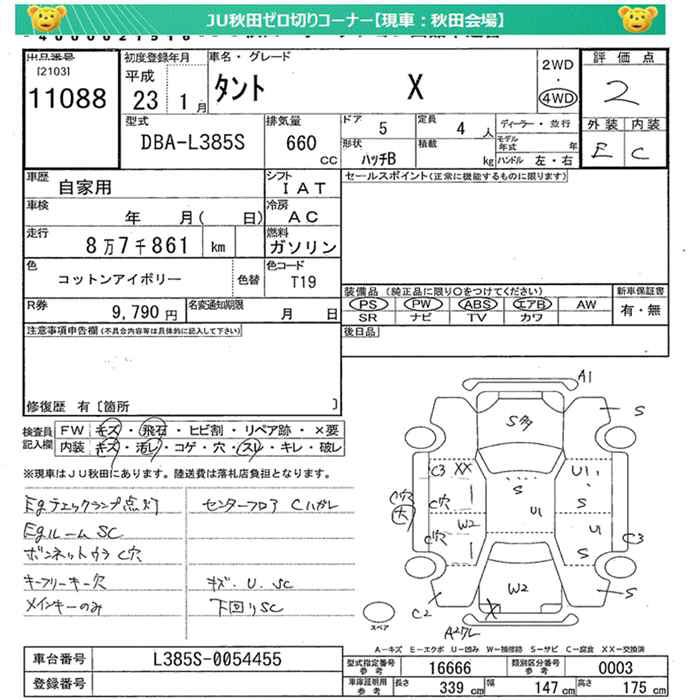 JU秋田ゼロ切りコーナー【現車：秋田会場】
出品番号
[2103]
11088
初度登録年月
平成
23 1月
車名・グレード
タント X
2WD
・
4WD
評価点
2
外装 内装
E C
型式
DBA-L385S
排気量
660
cc
ドア
5
定員
4 人
形状
ハッチB
積載
kg
ディーラー・並行
モデル年式
年
ハンドル 左・右
車歴
自家用
シフト
IAT
車検
年 月( 日)
冷房
AC
走行
8万7千861 km
燃料
ガソリン
色
コットンアイボリー
色替
色コード
T19
R券
9,790 円
名変通知期限
月 日
セールスポイント(正常に機能するものに限ります)
装備品 (純正品に限り○をつけてください)
PS PW ABS エアB AW
SR ナビ TV カワ
新車保証書
有・無
後日品
注意事項申告欄(不具合内容等は具体的に記入して下さい)
修復歴 有〔箇所 〕
検査員記入欄
FW キズ・飛石・ヒビ割・リペア跡・×要
内装 キズ・汚レ・コゲ・穴・スレ・キレ・破レ
※現車はJU秋田にあります。陸送費は落札店負担となります。
Egチエックランプ点灯
センターフロア Cハガレ
Egルーム SC
ボンネットウラ C穴
キーフリーキー欠
キズ. U. SC
メインキーのみ
下回り SC
A1
S多
S
C3 XX
U1
C穴
C穴
大
S
S
W2
U1
U1
C穴
S
C3
W2
C2
X
S
スペア
A-キズ E-エクボ U-凹み W-補修跡 S-サビ C-腐食 XX-交換済
車台番号
L385S-0054455
登録番号
型式指定番号
参考
16666
類別区分番号
参考
0003
車庫証明用
参考
長さ 339 cm
幅 147 cm
高さ 175 cm